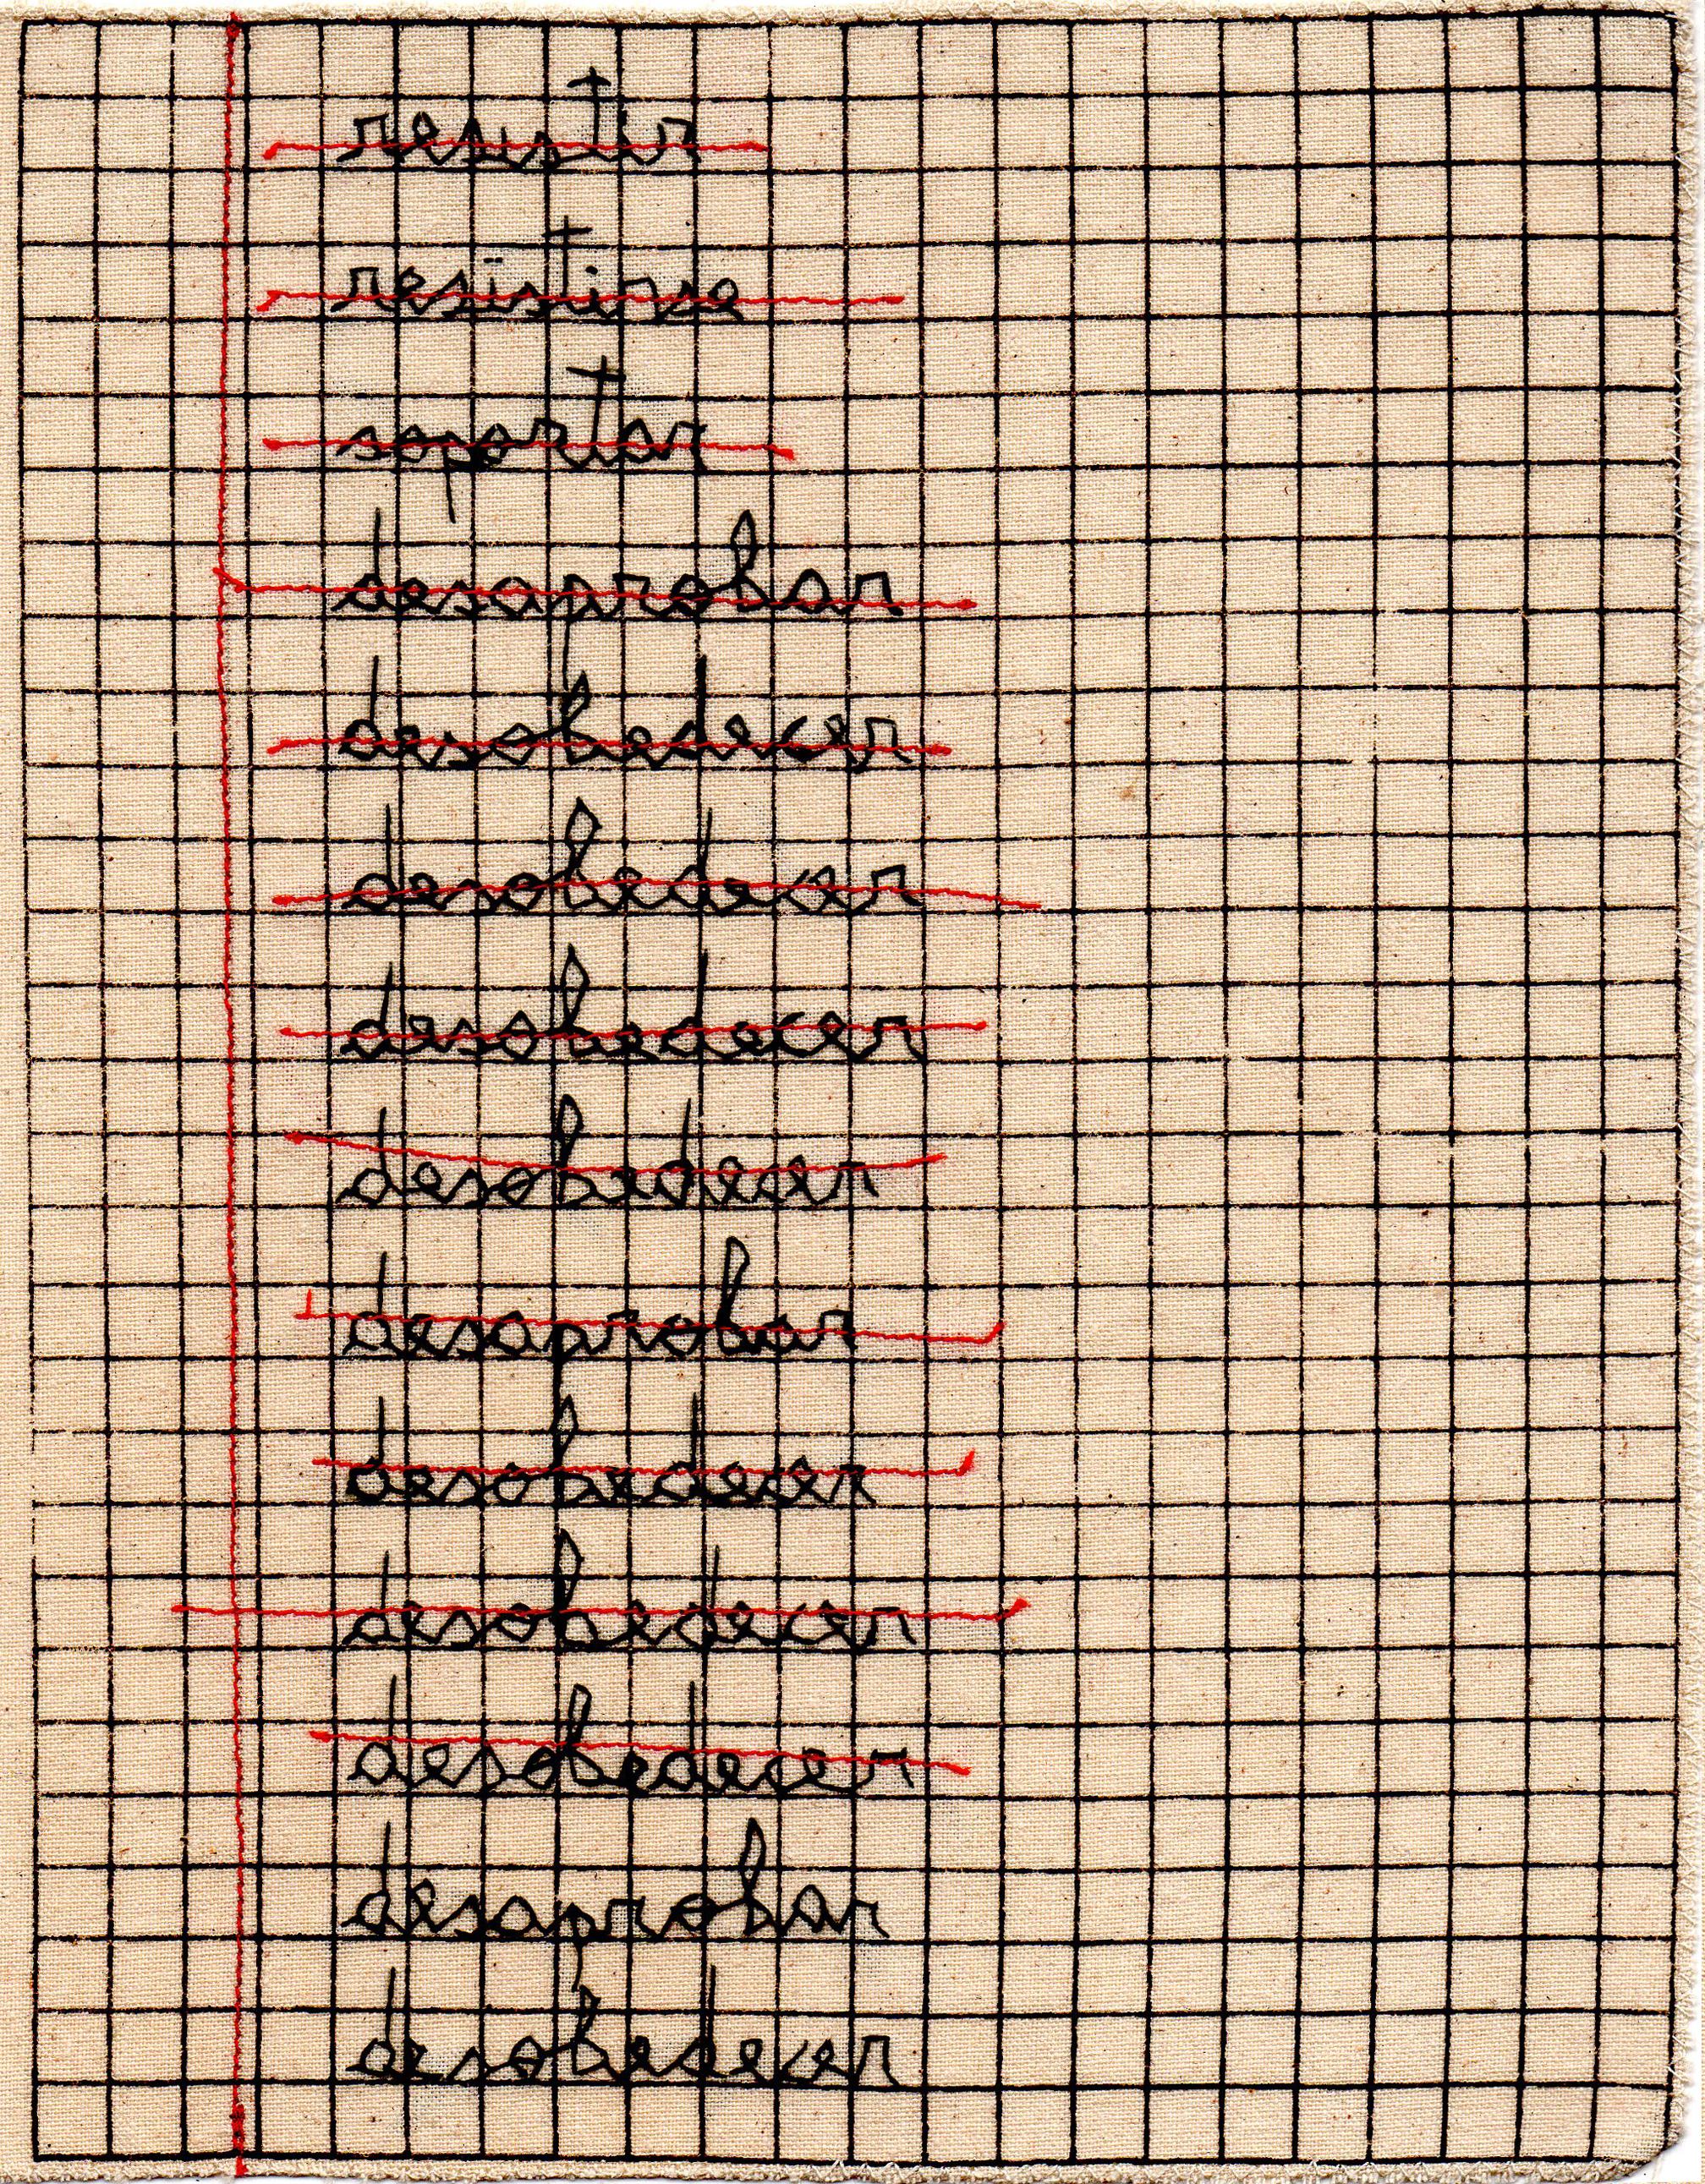 resistir
resistirse
soportar
desaprobar
desobedecer
desobedecer
desobedecer
desobedecer
desaprobar
desobedecer
desobedecer
desobedecer
desaprobar
desobedecer